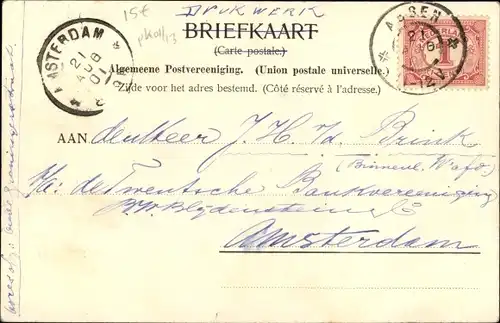 15€
DRUKWERK
BRIEFKAART
(Carte postale.)
Algemeene Postvereeniging. (Union postale universelle.)
Zijde voor het adres bestemd. (Côté réservé à l'adresse.)
AMSTERDAM
21
AUG
01
ASSEN
21
NEDERLAND
1
AAN den Heer J. H. Brink
p/a: de Twentsche Bankvereeniging
B. W. Blydenstein & C
Amsterdam